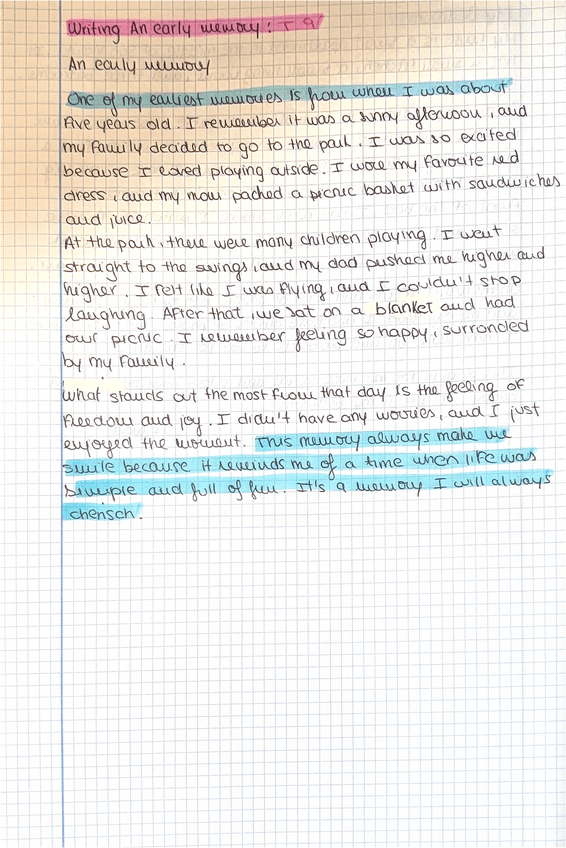 Writing An early memory: T 9
An early memory
One of my earliest memories is from when I was about
five years old. I remember it was a sunny afternoon, and
my family decided to go to the park. I was so excited
because I loved playing outside. I wore my favourite red
dress, and my mom packed a picnic basket with sandwiches
and juice.
At the park, there were many children playing. I went
straight to the swings, and my dad pushed me higher and
higher. I felt like I was flying, and I couldn't stop
laughing. After that, we sat on a blanket and had
our picnic. I remember feeling so happy, surronded
by my family.
What stands out the most from that day is the feeling of
freedom and joy. I didn't have any worries, and I just
enjoyed the moment. This memory always make me
smile because it reminds me of a time when life was
simple and full of fun. It's a memory I will always
cherisch.